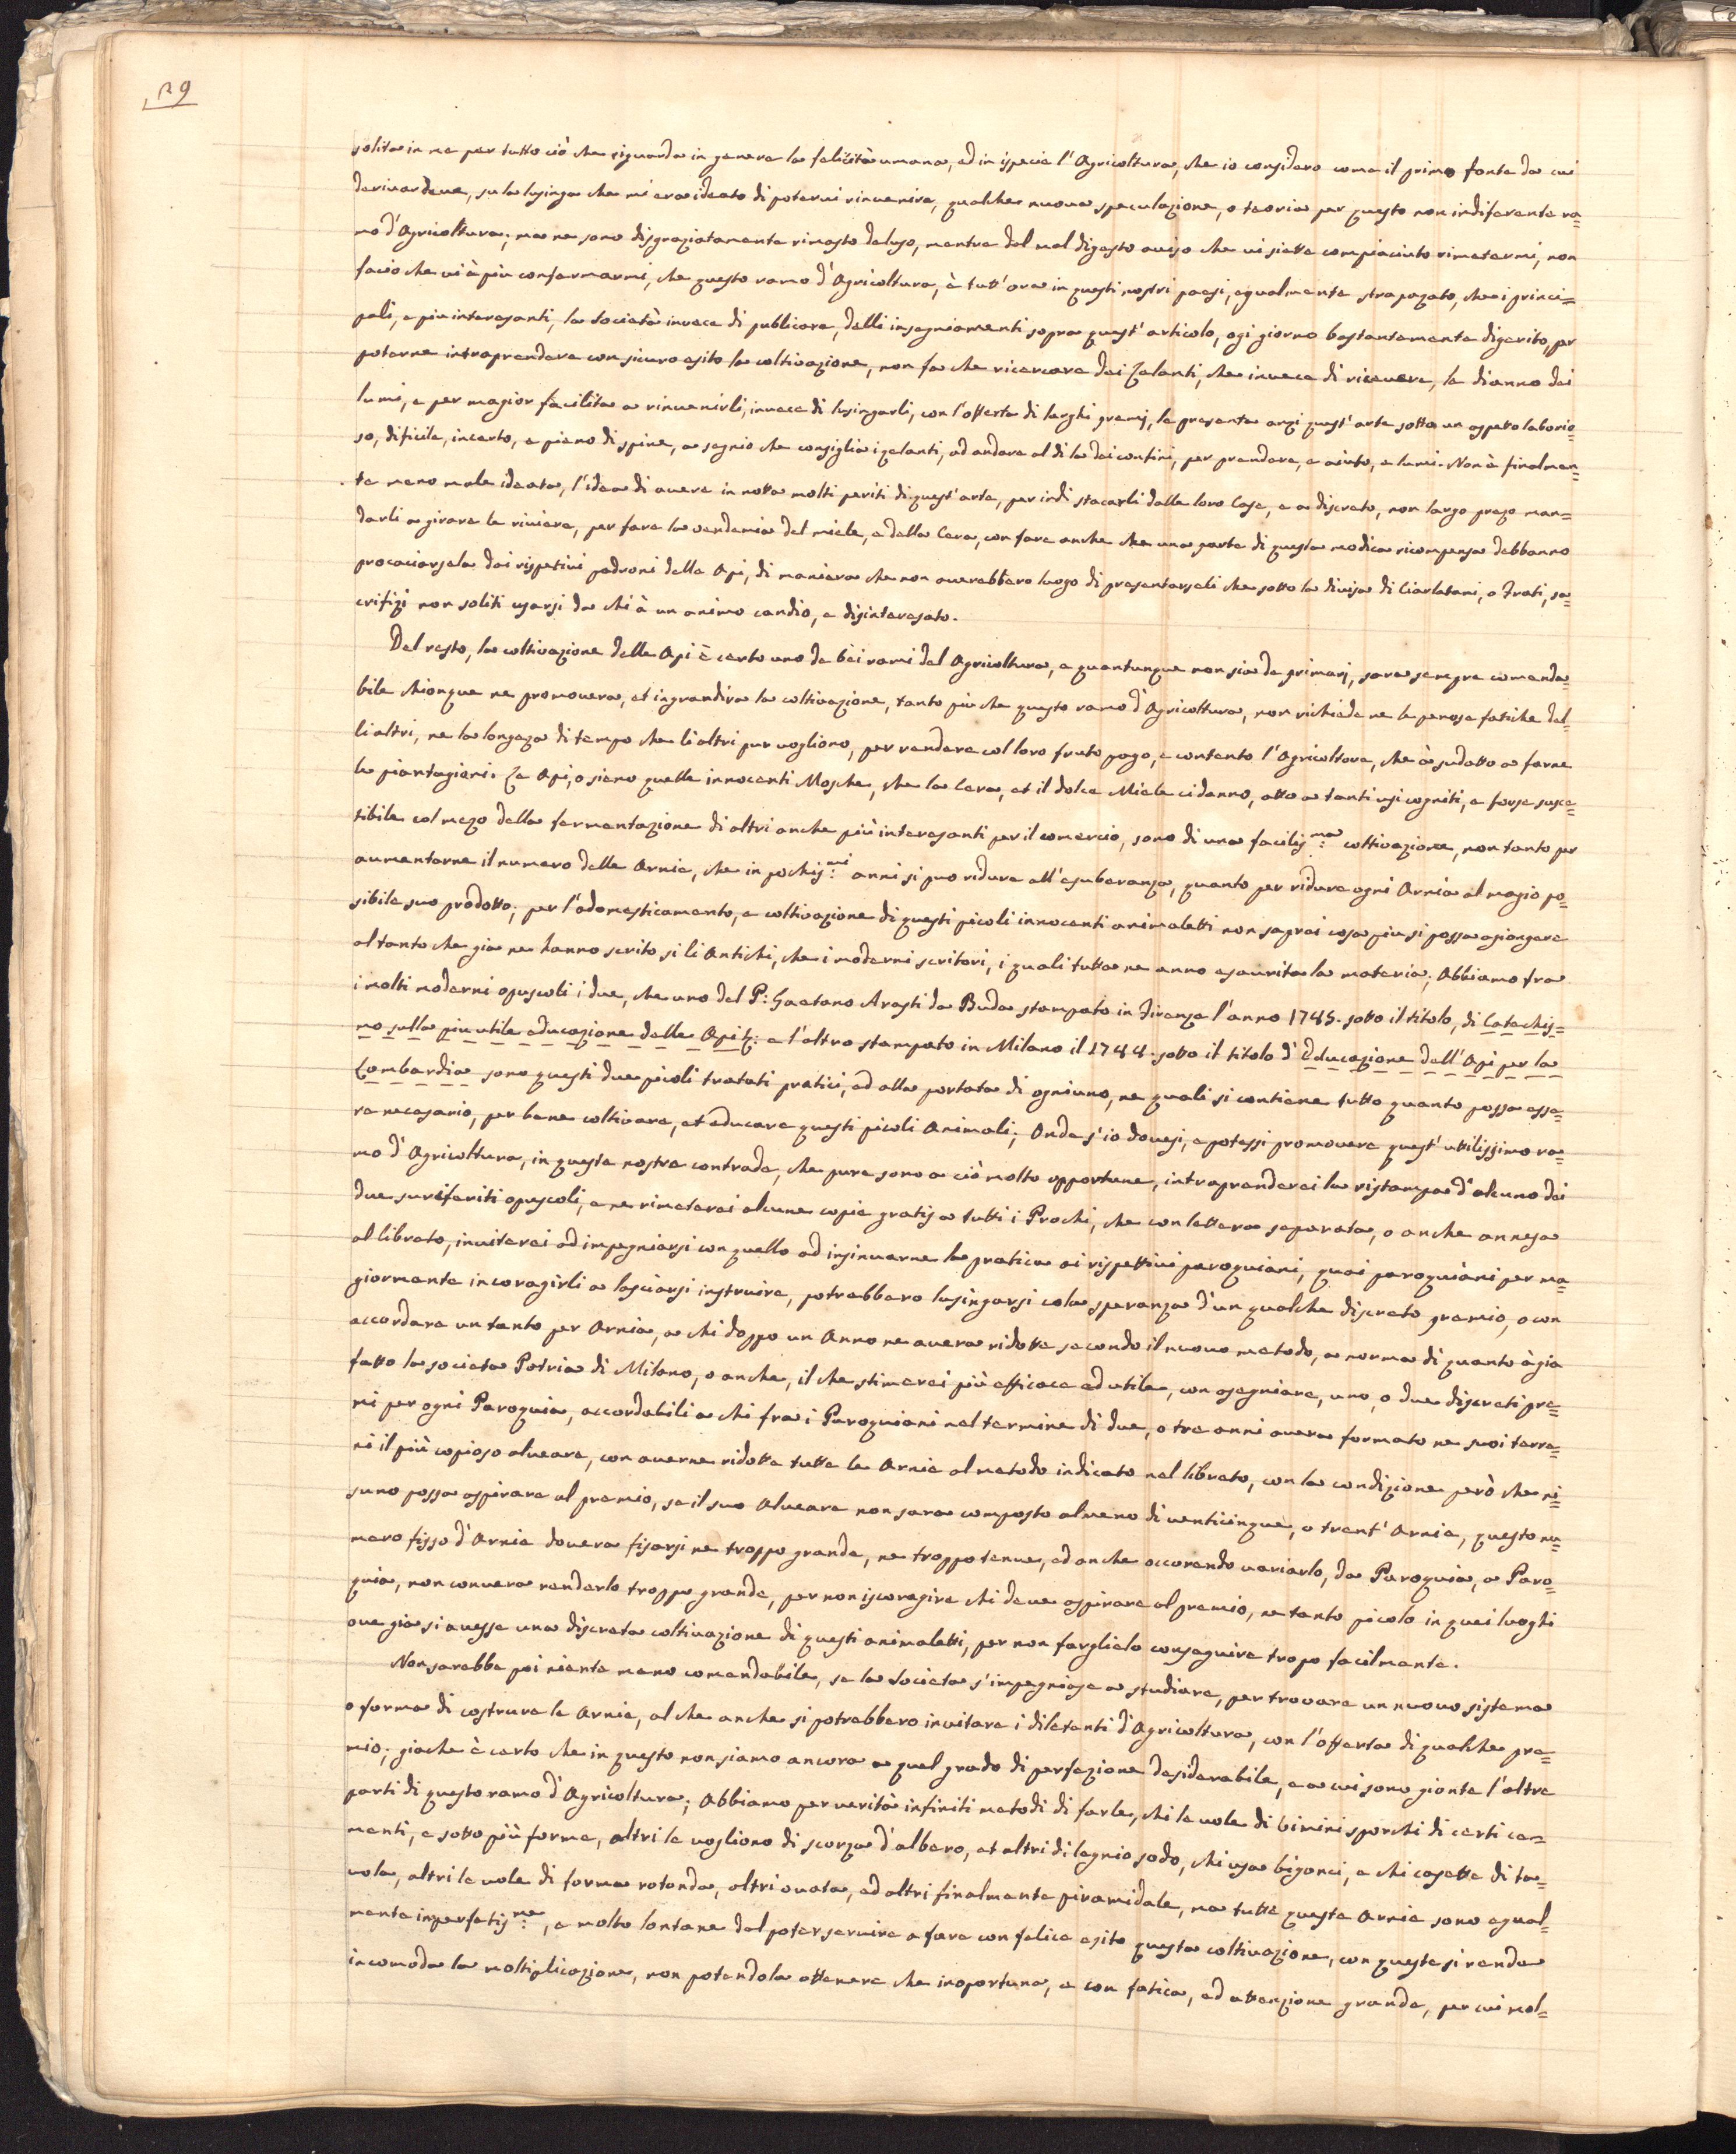 39
solita in me per tutto ciò che riguarda in genere la felicità umana, ed in ispecie l'Agricoltura, che io considero come il primo fonte da cui
derivar deve, su la lusinga che mi era ideato di potervi rinvenire, qualche nuova speculazione, o teoria per questo non indiferente ra=
mo d'Agricoltura; ma ne sono disgraziatamente rimasto deluso, mentre dal mal digesto aviso che vi siette compiaciuto rimetermi, non
facio che vi è più confermarmi, che questo ramo d'Agricoltura, è tutt'ora in questi nostri paesi, egualmente strapazato, che i princi=
pali, e piu interesanti, la Società invece di publicare, delli insegniamenti sopra quest'articolo, ogi giorno bastantemente digerito, per
poterne intraprendere con sicuro esito la coltivazione, non fa che ricercare dei Zelanti, che invece di ricevere, le dianno dei
lumi, e per magior facilità a rinvenirli, invece di lusingarli, con l'offerta di larghi premj, le presenta anzi quest'arte sotto un aspetto laborio=
so, dificile, incerto, e pieno di spine, a segnio che consiglia i zelanti, ad andare al di la dei confini, per prendere, e aiuto, e lumi. Non è finalmen=
te meno male ideata, l'idea di avere in notta molti periti di quest'arte, per indi stacarli dalle loro Case, e a discreto, non largo prezo man=
darli a girare le riviere, per fare la vendemia del miele, e della Cera, con fare anche che una parte di questa modica ricompensa debbanno
procaciarsela dai rispetivi padroni delle Api, di maniera che non averebbero luogo di presentarseli che sotto la divisa di Ciarlatani, o Frati, sa=
crifizi non soliti usarsi da chi à un animo candio, e disinteresato.
Del resto, la coltivazione delle Api è certo uno de bei rami del Agricoltura, e quantunque non sia de primarj, sara sempre comenda=
bile chionque ne promovera, et ingrandira la coltivazione, tanto più che questo ramo d'Agricoltura, non richiede ne le penose fatiche del=
li altri, ne la longeza di tempo che li altri pur vogliono, per rendere col loro fruto pago, e contento l'Agricoltore, che à sudatto a farne
le piantagioni. Le Api, o sieno quelle innocenti Mosche, che la Cera, et il dolce Miele ci danno, atto a tanti usi cogniti, e forse susce=
tibile col mezo della fermentazione di altri anche più interesanti per il comercio, sono di una facilis:ma coltivazione, non tanto per
aumentarne il numero delle Arnie, che in pochis:mi anni si puo ridure all'esuberanza, quanto per ridure ogni Arnia al magio po=
sibile suo prodotto; per l'adomesticamento, e coltivazione di questi picoli innocenti animaletti non saprei cosa piu si possa agiongere
al tanto che gia ne hanno scrito si li Antichi, che i moderni scritori, i quali tutta ne anno esaurita la materia; Abbiamo fra
i molti moderni opuscoli i due, che uno del P: Gaetano Arasti da Buda stampato in Firenze l'anno 1785. sotto il titolo, di Catechis=
mo sulla piu utile educazione delle Api &: e l'altro stampato in Milano il 1784. sotto il titolo d'Educazione dell'Api per la
Lombardia sono questi due picoli tratati pratici, ed alla portata di ogniuno, ne quali si contiene tutto quanto possa esse=
re necesario, per bene coltivare, et educare questi picoli Animali; Onde s'io dovesi, e potessi promovere quest'utilissimo ra=
mo d'Agricoltura, in queste nostre contrade, che pure sono a ciò molto opportune, intraprenderei la ristampa d'alcuno dei
due suriferiti opuscoli, e ne rimeterei alcune copie gratis a tutti i Prochi, che con lettera separata, o anche annesa
al libreto, inviterei ad impegniarsi con quello ad insinuarne la pratica ai rispettivi paroquiani, quai paroquiani per ma=
giormente incoragirli a lasciarsi instruire, potrebbero lusingarsi cola speranza d'un qualche discreto premio, o con
accordare un tanto per Arnia, a chi doppo un Anno ne avera ridotte secondo il nuovo metodo, a norma di quanto à gia
fatto la societa Patria di Milano, o anche, il che stimerei più efficace ed utile, con asegniare, uno, o due discreti pre=
mi per ogni Paroquia, accordabili a chi fra i Paroquiani nel termine di due, o tre anni avera formato ne suoi terre=
ni il più copioso alveare, con averne ridotte tutte le Arnie al metodo indicato nel libreto, con la condizione però che ni=
suno possa aspirare al premio, se il suo Alveare non sara composto almeno di venticinque, o trent'Arnie, questo nu=
mero fisso d'Arnie dovera fisarsi ne troppo grande, ne troppo tenue, ed anche accorendo variarlo, da Paroquia, a Paro=
quia, non convera renderlo troppo grande, per non iscoragire chi deve aspirare al premio, ne tanto picolo in quei luoghi
ove gia si avesse una discreta coltivazione di questi animaletti, per non farglielo conseguire tropo facilmente.
Non sarebbe poi niente meno comendabile, se la Societa s'impegniase a studiare, per trovare un nuovo sistema
o forma di costrure le Arnie, al che anche si potrebbero invitare i diletanti d'Agricoltura, con l'offerta di qualche pre=
mio; giache è certo che in questo non siamo ancora a quel grado di perfezione desiderabile, e a cui sono gionte l'altre
parti di questo ramo d'Agricoltura; Abbiamo per verità infiniti metodi di farle, chi le vole di vimini sporchi di certi ce=
menti, e sotto più forme, altri le vogliono di scorza d'albero, et altri di legnio sodo, chi usa bigonci, e chi casette di ta=
vola, altri le vole di forma rotonda, altri ovata, ed altri finalmente piramidale, ma tutte queste Arnie sono egual=
mente imperfetis:me, e molto lontane dal poter servire a fare con felice esito questa coltivazione, con queste si rende
incomoda la moltiplicazione, non potendola ottenere che inoportuna, e con fatica, ed attenzione grande, per cui mol=